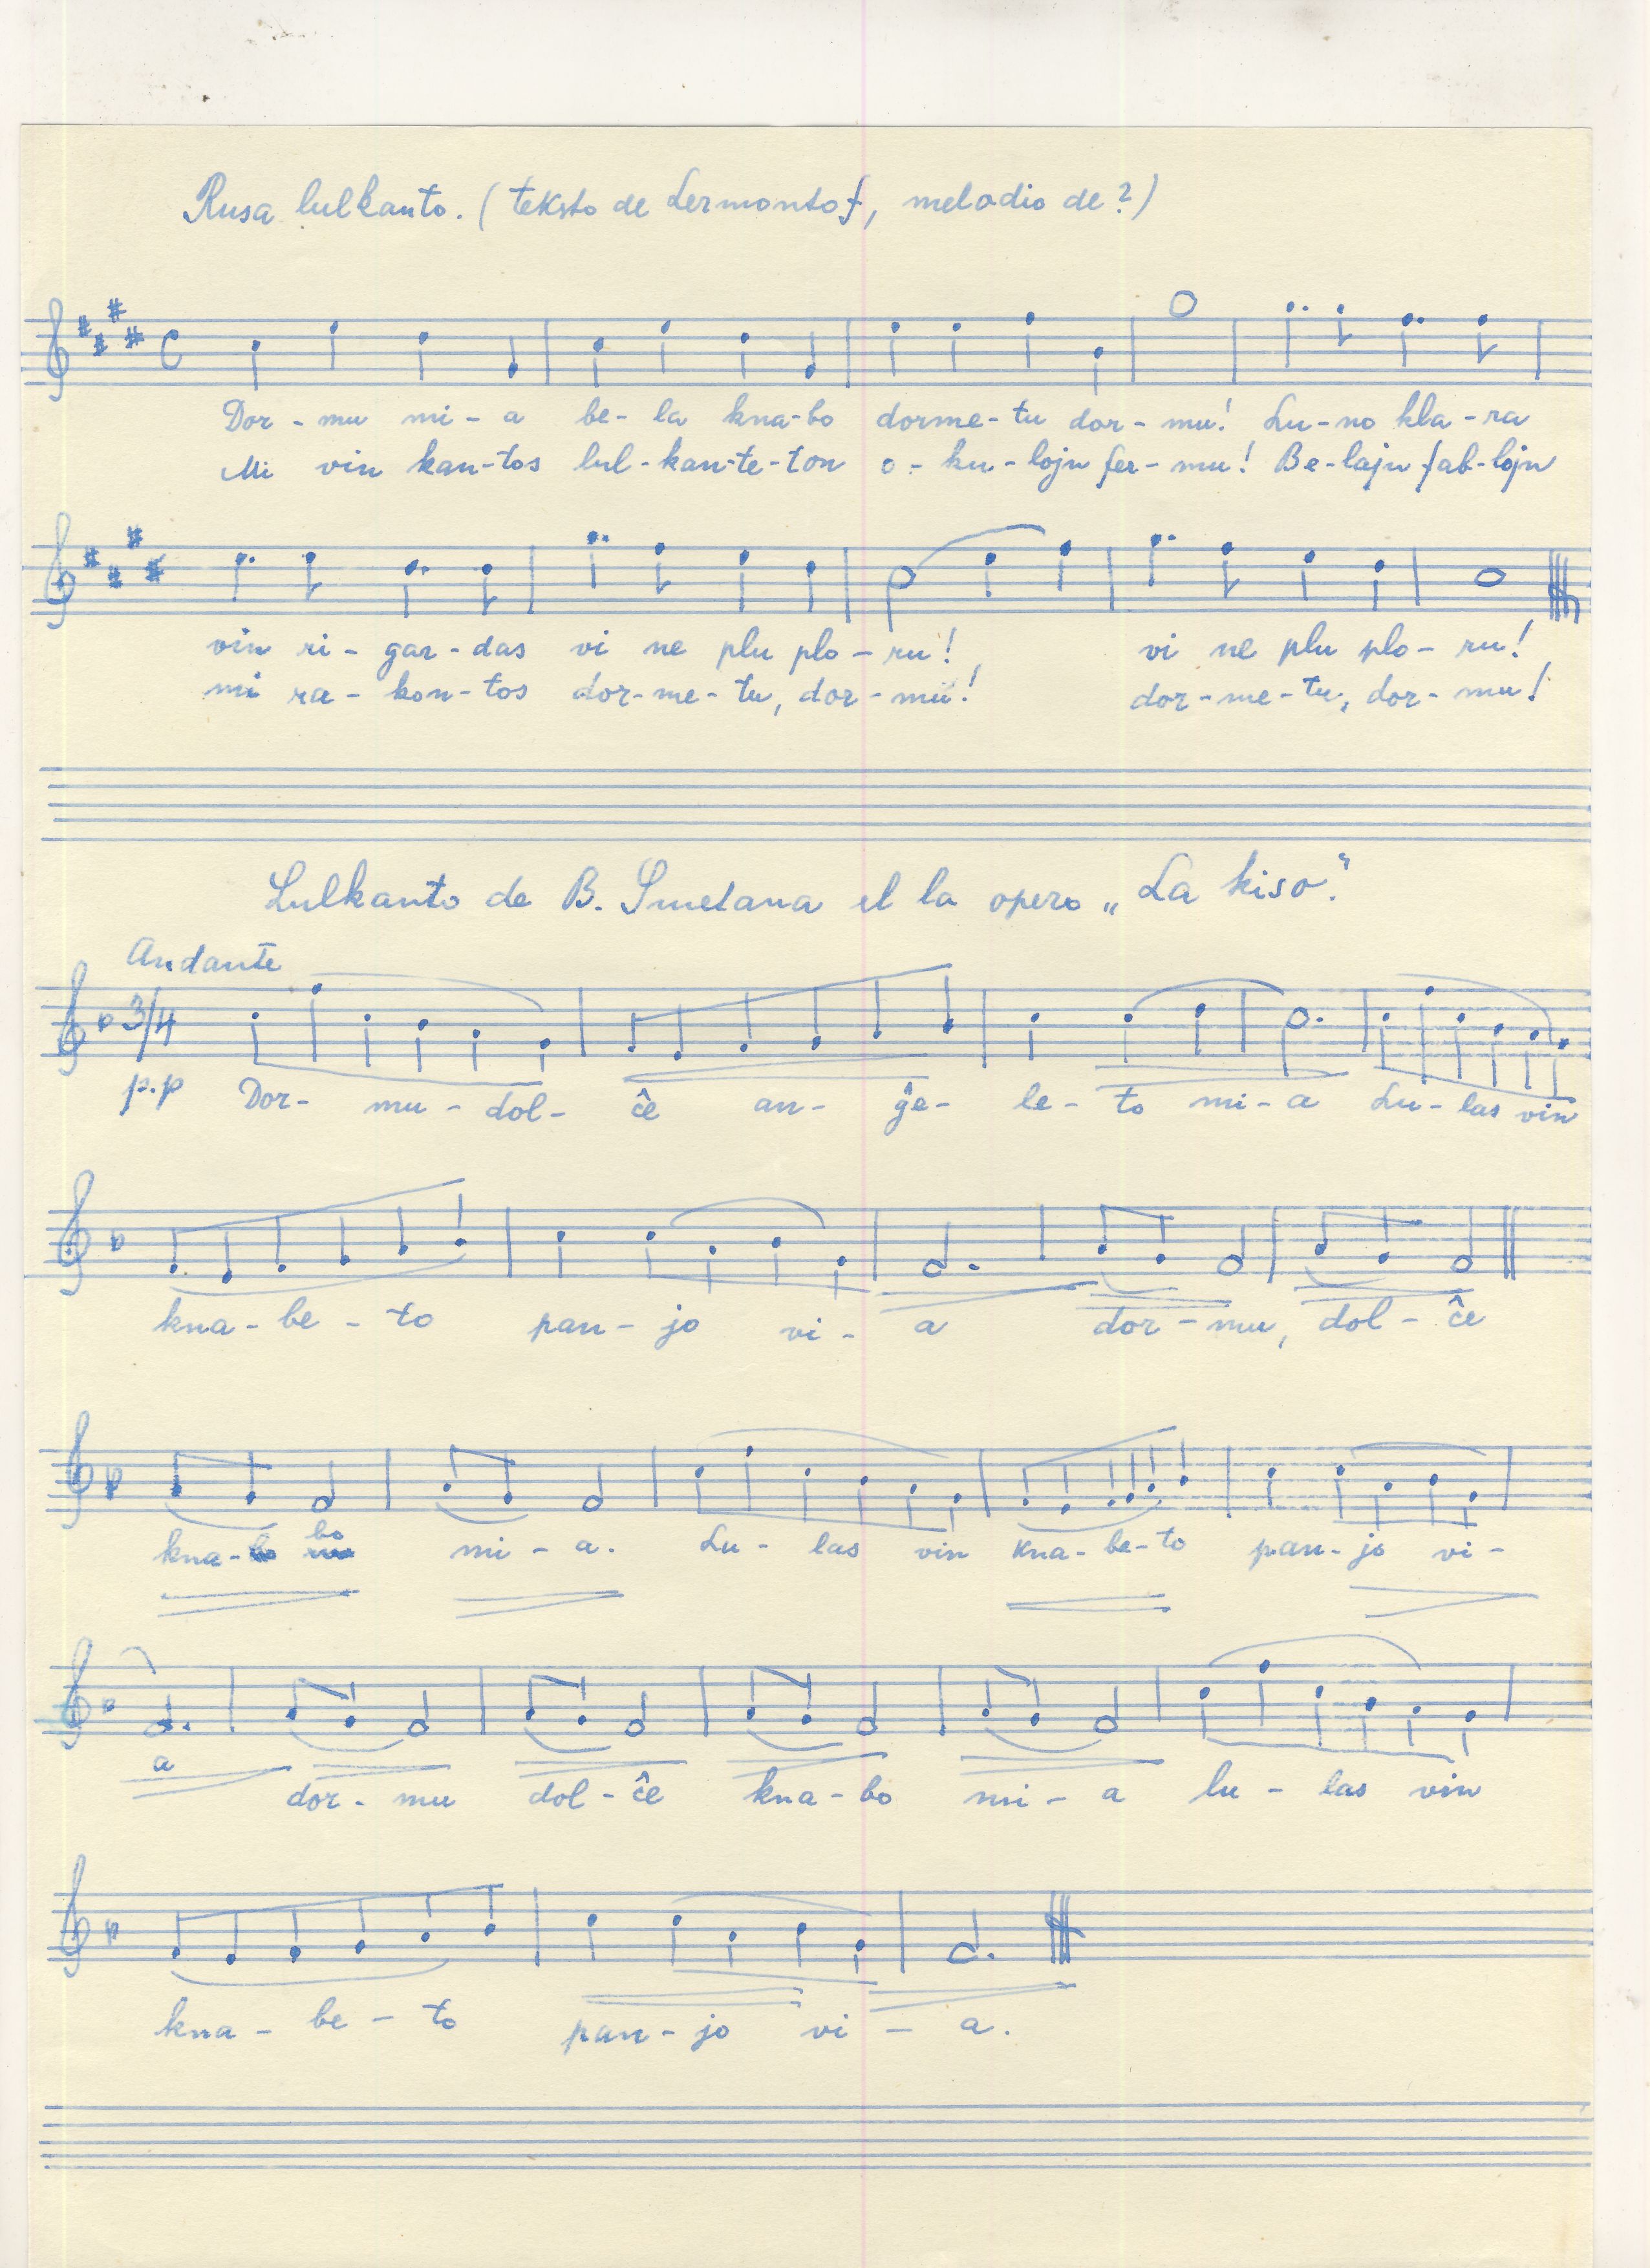 Rusa lulkanto. (teksto de Lermontof, melodio de?)
Dor-mu mi-a be-la kna-bo dorme-tu dor-mu! Lu-no kla-ra
Mi vin kan-tos lul-kan-te-ton o-ku-lojn fer-mu! Be-lajn fab-lojn
vin ri-gar-das vi ne plu plo-ru! vi ne plu plo-ru!
mi ra-kon-tos dor-me-tu, dor-mu! dor-me-tu, dor-mu!
Lulkanto de B. Smetana el la opero „La kiso."
Andante
3/4
p.p Dor-mu-dol-ĉe an-ĝe-le-to mi-a Lu-las vin
kna-be-to pan-jo vi-a dor-mu, dol-ĉe
kna-bo mi-a. Lu-las vin kna-be-to pan-jo vi-
a dor-mu dol-ĉe kna-bo mi-a lu-las vin
kna-be-to pan-jo vi-a.